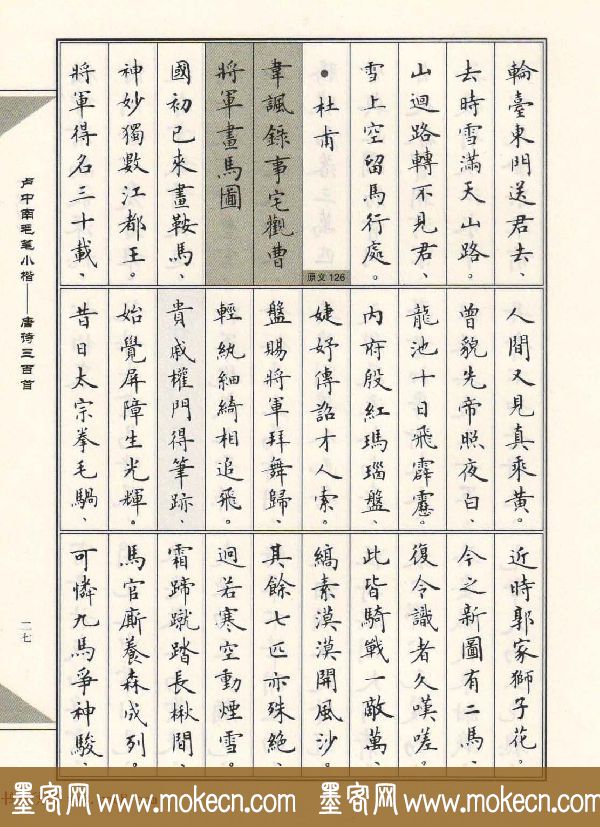 輪臺東門送君去、
去時雪滿天山路。
山迴路轉不見君、
雪上空留馬行處。
●杜甫
原文126
韋諷錄事宅觀曹
將軍畫馬圖
國初已來畫鞍馬、
神妙獨數江都王。
將軍得名三十載、
人間又見真乘黃。
曾貌先帝照夜白、
龍池十日飛霹靂。
內府殷紅瑪瑙盤、
婕妤傳詔才人索。
盤賜將軍拜舞歸、
輕紈細綺相追飛。
貴戚權門得筆跡、
始覺屏障生光輝。
昔日太宗拳毛騧、
近時郭家獅子花。
今之新圖有二馬、
復令識者久嘆嗟。
此皆騎戰一敵萬、
縞素漠漠開風沙。
其餘七匹亦殊絕、
迥若寒空動煙雪。
霜蹄蹴踏長楸間、
馬官廝養森成列。
可憐九馬爭神駿、
卢中南毛笔小楷——唐诗三百首
二七
墨客网 www.mokecn.com 墨客网 www.mokecn.com